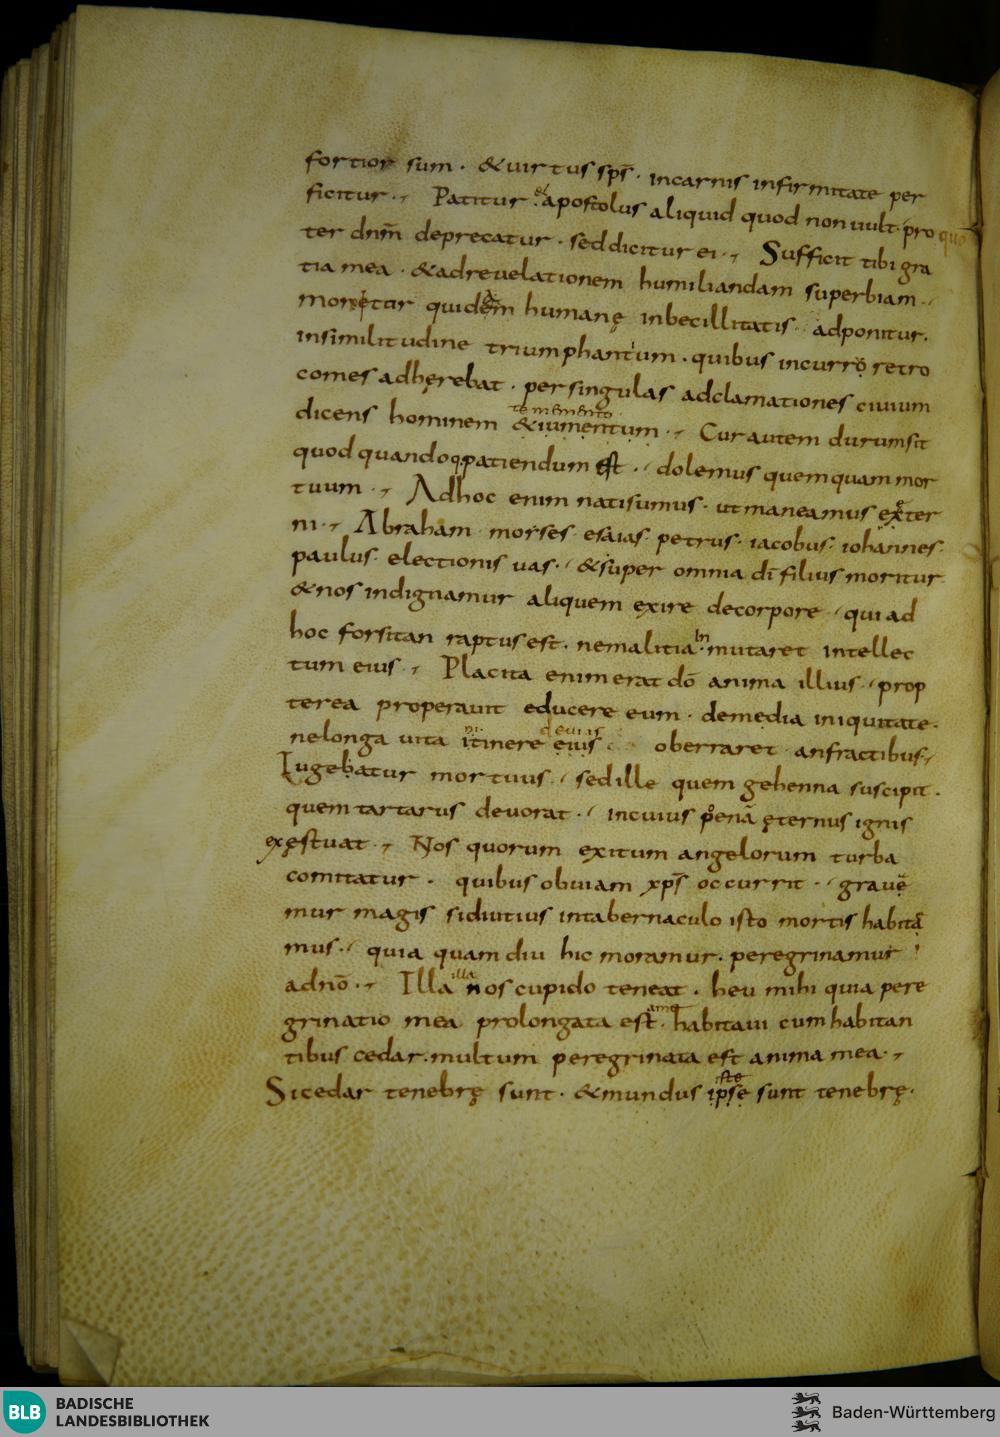 fortior sum · &uirtus sp̄s · incarnis infirmitate per
ficitur · Patitur et apostolus aliquid quod non uult · pro quo
ter dnm̄ deprecatur · sed dicitur ei · Sufficit tibi gra
tia mea · &adreuelationem humiliandam superbiam ·
monetur quidem humanę inbecillitatis · adponitur ·
insimilitudine triumphantium · quibus incurro retro
comes adhęrebat · per singulas adclamationes ciuium
te memento
dicens hominem &iumentum · Cur autem durum sit
quod quandoq patiendum est · dolemus quemquam mor
tuum · Adhoc enim nati sumus · ut maneamus exter
ni · Abraham moyses esaias · petrus · iacobus · iohannes ·
paulus · electionis uas · &super omnia dī filius moritur
&nos indignamur aliquem exire decorpore · qui ad
hoc forsitan raptus est · nemalitia mutaret intellec
tum eius · Placita enim erat dō anima illius · prop
terea properauit educere eum · demedia iniquitate ·
deuius
nelonga uita itinere eius oberraret anfractibus ·
Lugebatur mortuus · sed ille quem gehenna suscipit ·
quem tartarus deuorat · incuius poenā ęternus ignis
exęstuat · Nos quorum exitum angelorum turba
comitatur · quibus obuiam xp̄s occurrit · grauę
mur magis si diutius intabernaculo isto mortis habitā
mus · quia quamdiu hic moramur · peregrinamur
illa
adnō · Illa nos cupido teneat · heu mihi quia pere
grinatio mea prolongata est · habitaui cum habitan
tibus cedar · multum peregrinata est anima mea ·
iste
Si cedar tenebrę sunt · &mundus ipse sunt tenebrę ·
BLB BADISCHE
LANDESBIBLIOTHEK
Baden-Württemberg